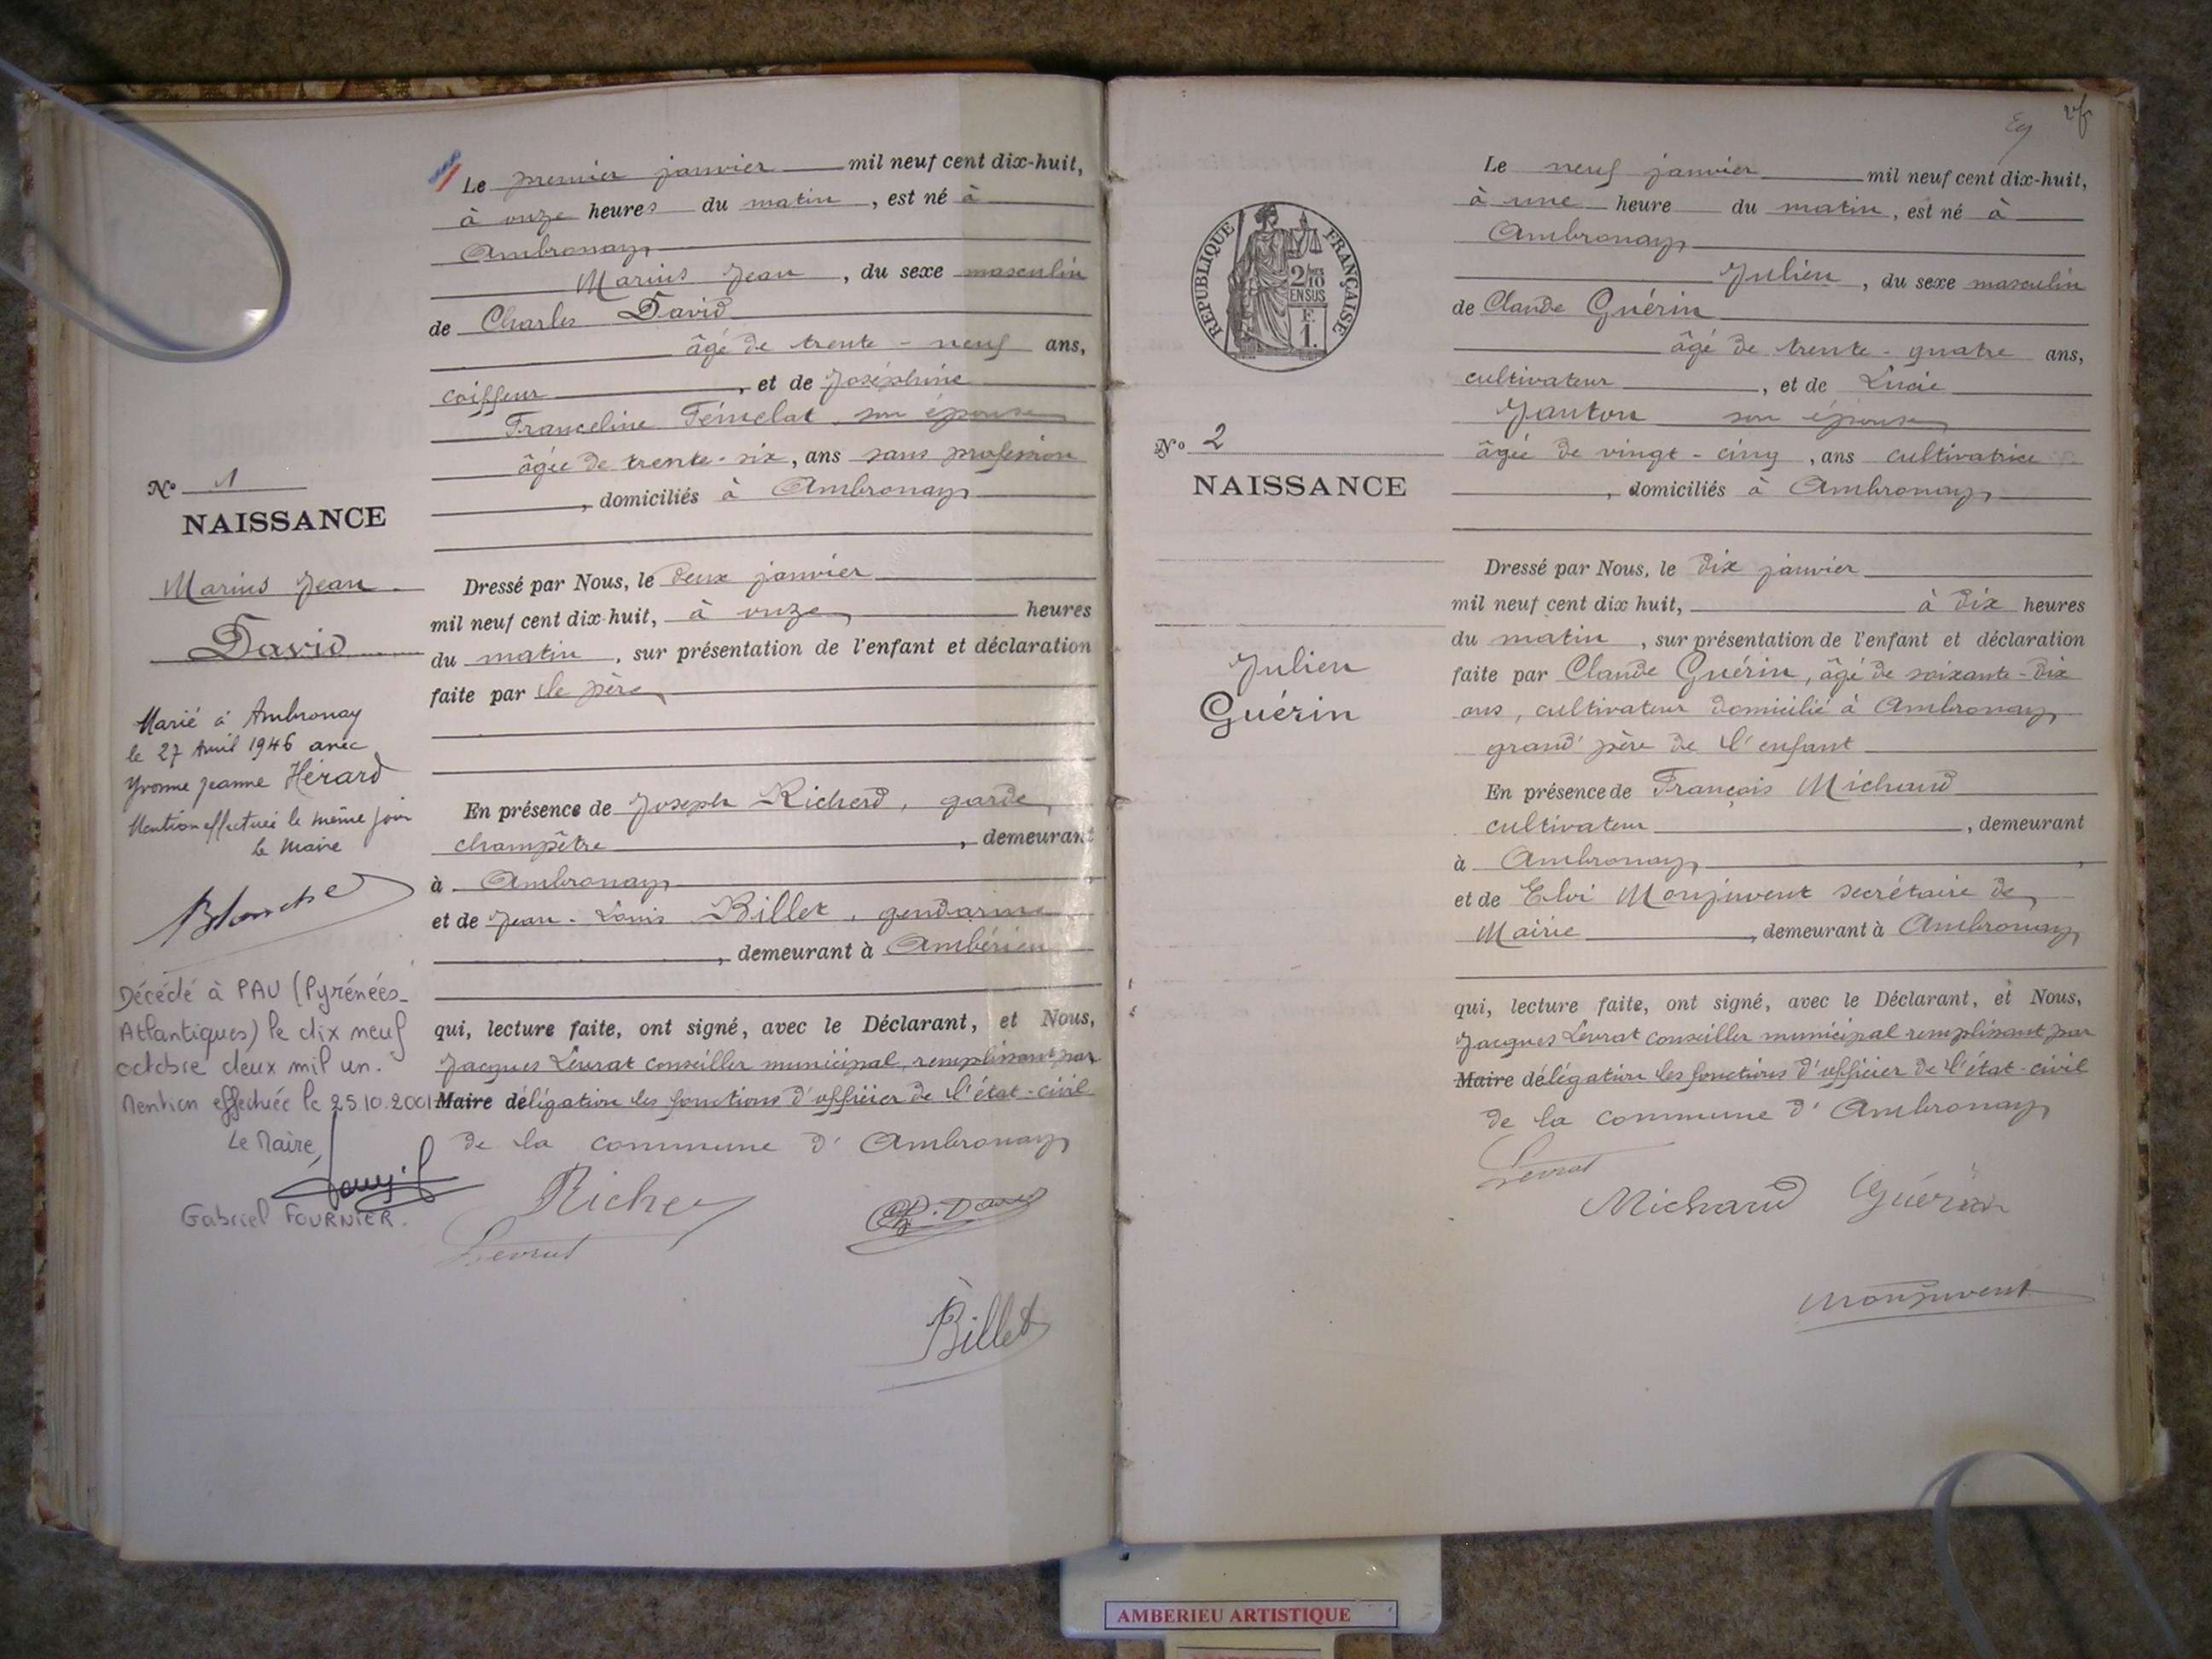 Le premier janvier mil neuf cent dix-huit,
à onze heures du matin, est né à
Ambronay
Marius Jean, du sexe masculin
de Charles David
âgé de trente-neuf ans,
coiffeur, et de Joséphine
Franceline Fémelat son épouse
âgée de trente-six, ans sans profession
, domiciliés à Ambronay
Nº 1
NAISSANCE
Marius Jean
David
Dressé par Nous, le deux janvier
mil neuf cent dix-huit, à onze heures
du matin, sur présentation de l'enfant et déclaration
faite par le père
En présence de Joseph Richerd, garde
champêtre, demeurant
à Ambronay
et de Jean-Louis Billet, gendarme
, demeurant à Ambérieu
qui, lecture faite, ont signé, avec le Déclarant, et Nous,
Jacques Levrat conseiller municipal, remplissant par
Maire délégation les fonctions d'officier de l'état-civil
de la commune d'Ambronay
Marié à Ambronay
le 27 Avril 1946 avec
Yvonne Jeanne Hérard
Mention effectuée le même jour
le Maire
Blanchet
Décédé à PAU (Pyrénées-
Atlantiques) le dix neuf
octobre deux mil un.
Mention effectuée le 25.10.2001
Le Maire,
Gabriel FOURNIER.
Levrat
Ch. David
Billet
Le neuf janvier mil neuf cent dix-huit,
à une heure du matin, est né à
Ambronay
Julien, du sexe masculin
de Claude Guérin
âgé de trente-quatre ans,
cultivateur, et de Lucie
Janton son épouse
âgée de vingt-cinq, ans cultivatrice
, domiciliés à Ambronay
REPUBLIQUE FRANÇAISE
2/10
EN SUS
F.
1.
Nº 2
NAISSANCE
Julien
Guérin
Dressé par Nous, le dix janvier
mil neuf cent dix huit, à dix heures
du matin, sur présentation de l'enfant et déclaration
faite par Claude Guérin, âgé de soixante-dix
ans, cultivateur domicilié à Ambronay
grand'père de l'enfant
En présence de François Michaud
cultivateur, demeurant
à Ambronay,
et de Eloi Monjuvent secrétaire de
Mairie, demeurant à Ambronay
qui, lecture faite, ont signé, avec le Déclarant, et Nous,
Jacques Levrat conseiller municipal remplissant par
Maire délégation les fonctions d'officier de l'état-civil
de la commune d'Ambronay
Levrat
Michaud Guérin
Monjuvent
AMBERIEU ARTISTIQUE